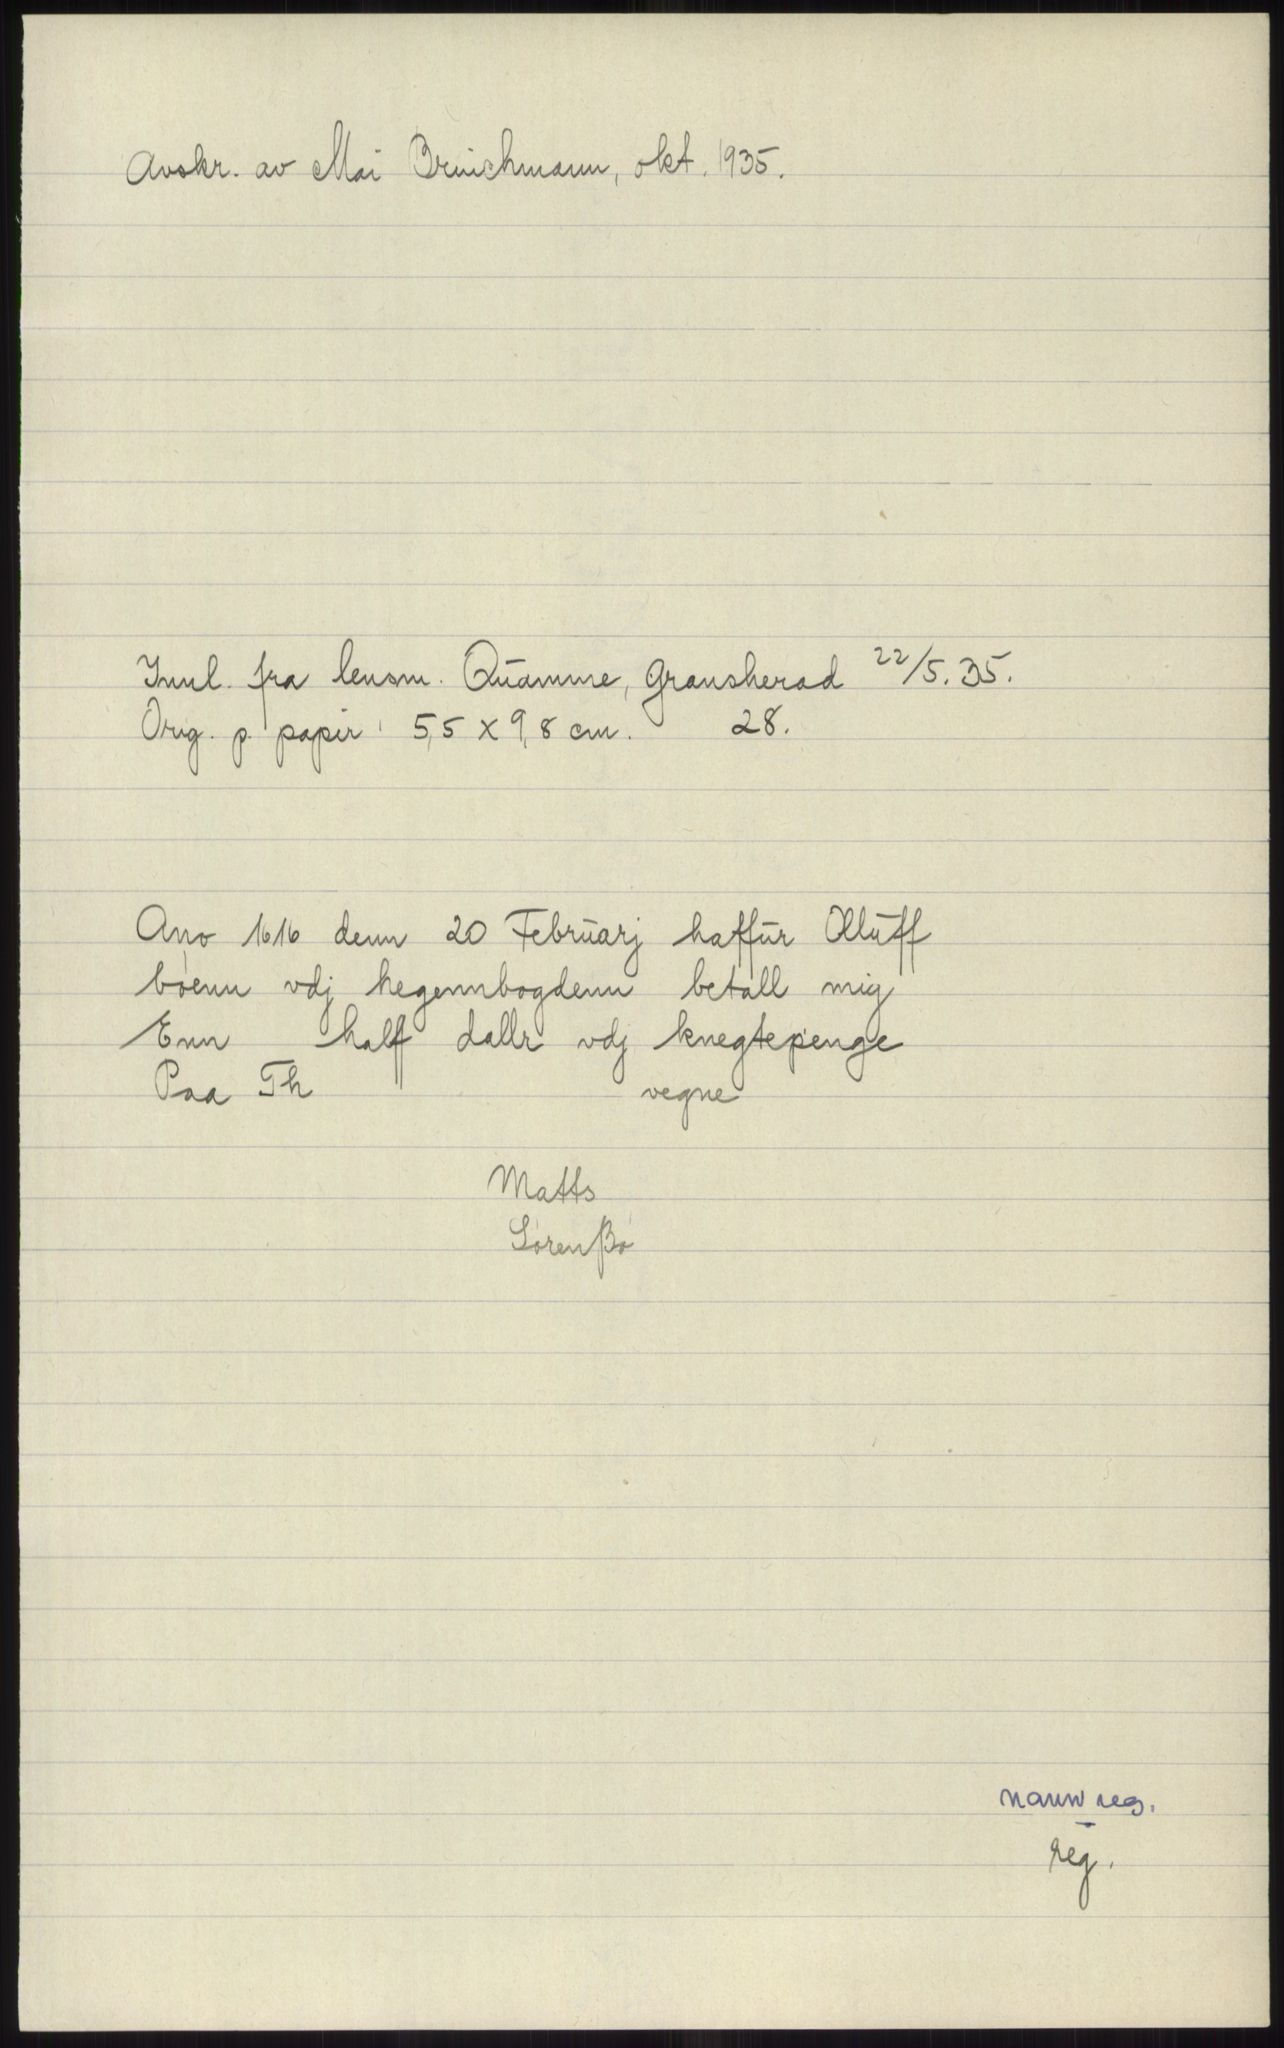 Avskr. av Mai Bruichmann, okt. 1935.
Innl. fra lensm. Quamme, Gransherad 22/5. 35.
Orig. p. papir 5,5 x 9,8 cm. 28.
Ano 1616 denn 20 Februarj haffur Olluff
boenn vdj hegennbogdenn betall mig
Enn half dallr vdj knegtepenge
Paa Th vegne
Matts
Sørenßø
navnreg.
reg.